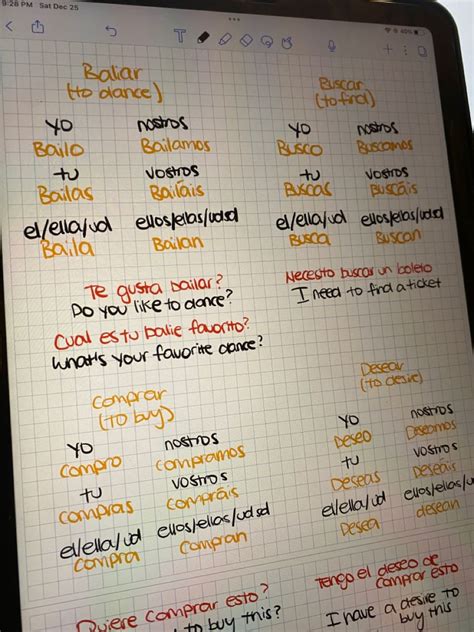 9:28 PM Sat Dec 25
40%
T
Baliar
(to dance)
yo nostros
Bailo Bailamos
tu vostros
Bailas Bailáis
el/ella/ud ellos/ellas/udsd
Baila Bailan
Te gusta bailar?
Do you like to dance?
Cual es tu balie favorito?
What's your favorite dance?
Buscar
(to find)
yo nostros
Busco Buscamos
tu vostros
Buscas Buscáis
el/ella/ud ellos/ellas/udsd
Busca Buscan
Necesto buscar un boleto
I need to find a ticket
Comprar
(to buy)
yo nostros
compro compramos
tu vostros
compras compráis
el/ella/ud ellos/ellas/udsd
compra compran
Quiere comprar esto?
to buy this?
Desear
(to desire)
yo nostros
Deseo Deseamos
tu vostros
Deseas Deseáis
el/ella/ud ellos/ellas/u
Desea desean
Tengo el deseo de
comprar esto
I have a desire to
buy this